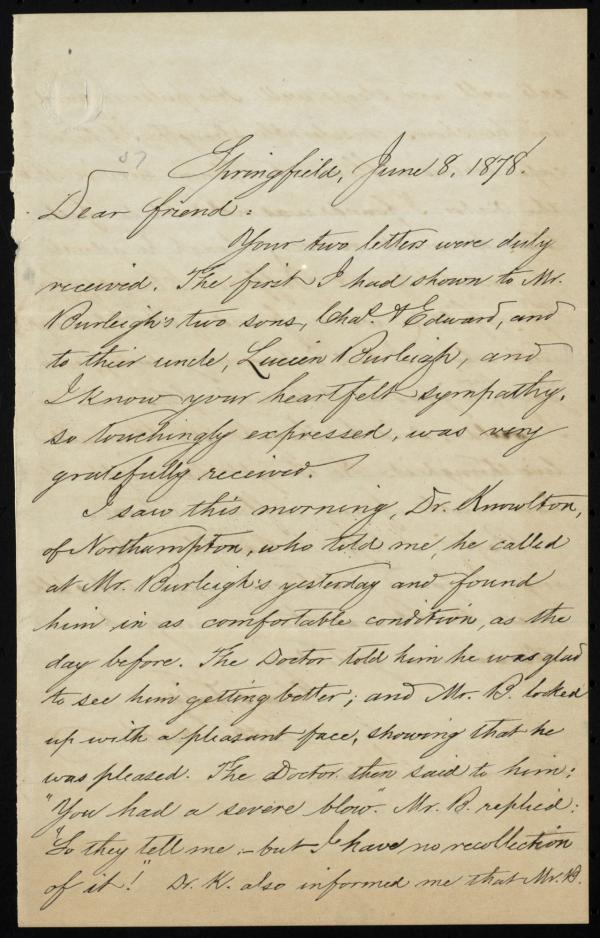 Springfield, June 8, 1878.
Dear friend:
Your two letters were duly
received. The first I had shown to Mr.
Burleigh's two sons, Chas. & Edward, and
to their uncle, Lucien Burleigh, and
I know your heartfelt sympathy,
so touchingly expressed, was very
gratefully received.
I saw this morning, Dr. Knowlton,
of Northampton, who told me, he called
at Mr. Burleigh's yesterday and found
him in as comfortable condition, as the
day before. The Doctor told him he was glad
to see him getting better; and Mr. B. looked
up with a pleasant face, showing that he
was pleased. The Doctor then said to him:
"You had a severe blow". Mr. B. replied:
"So they tell me,—but I have no recollection
of it!" Dr. K. also informed me that Mr. B.